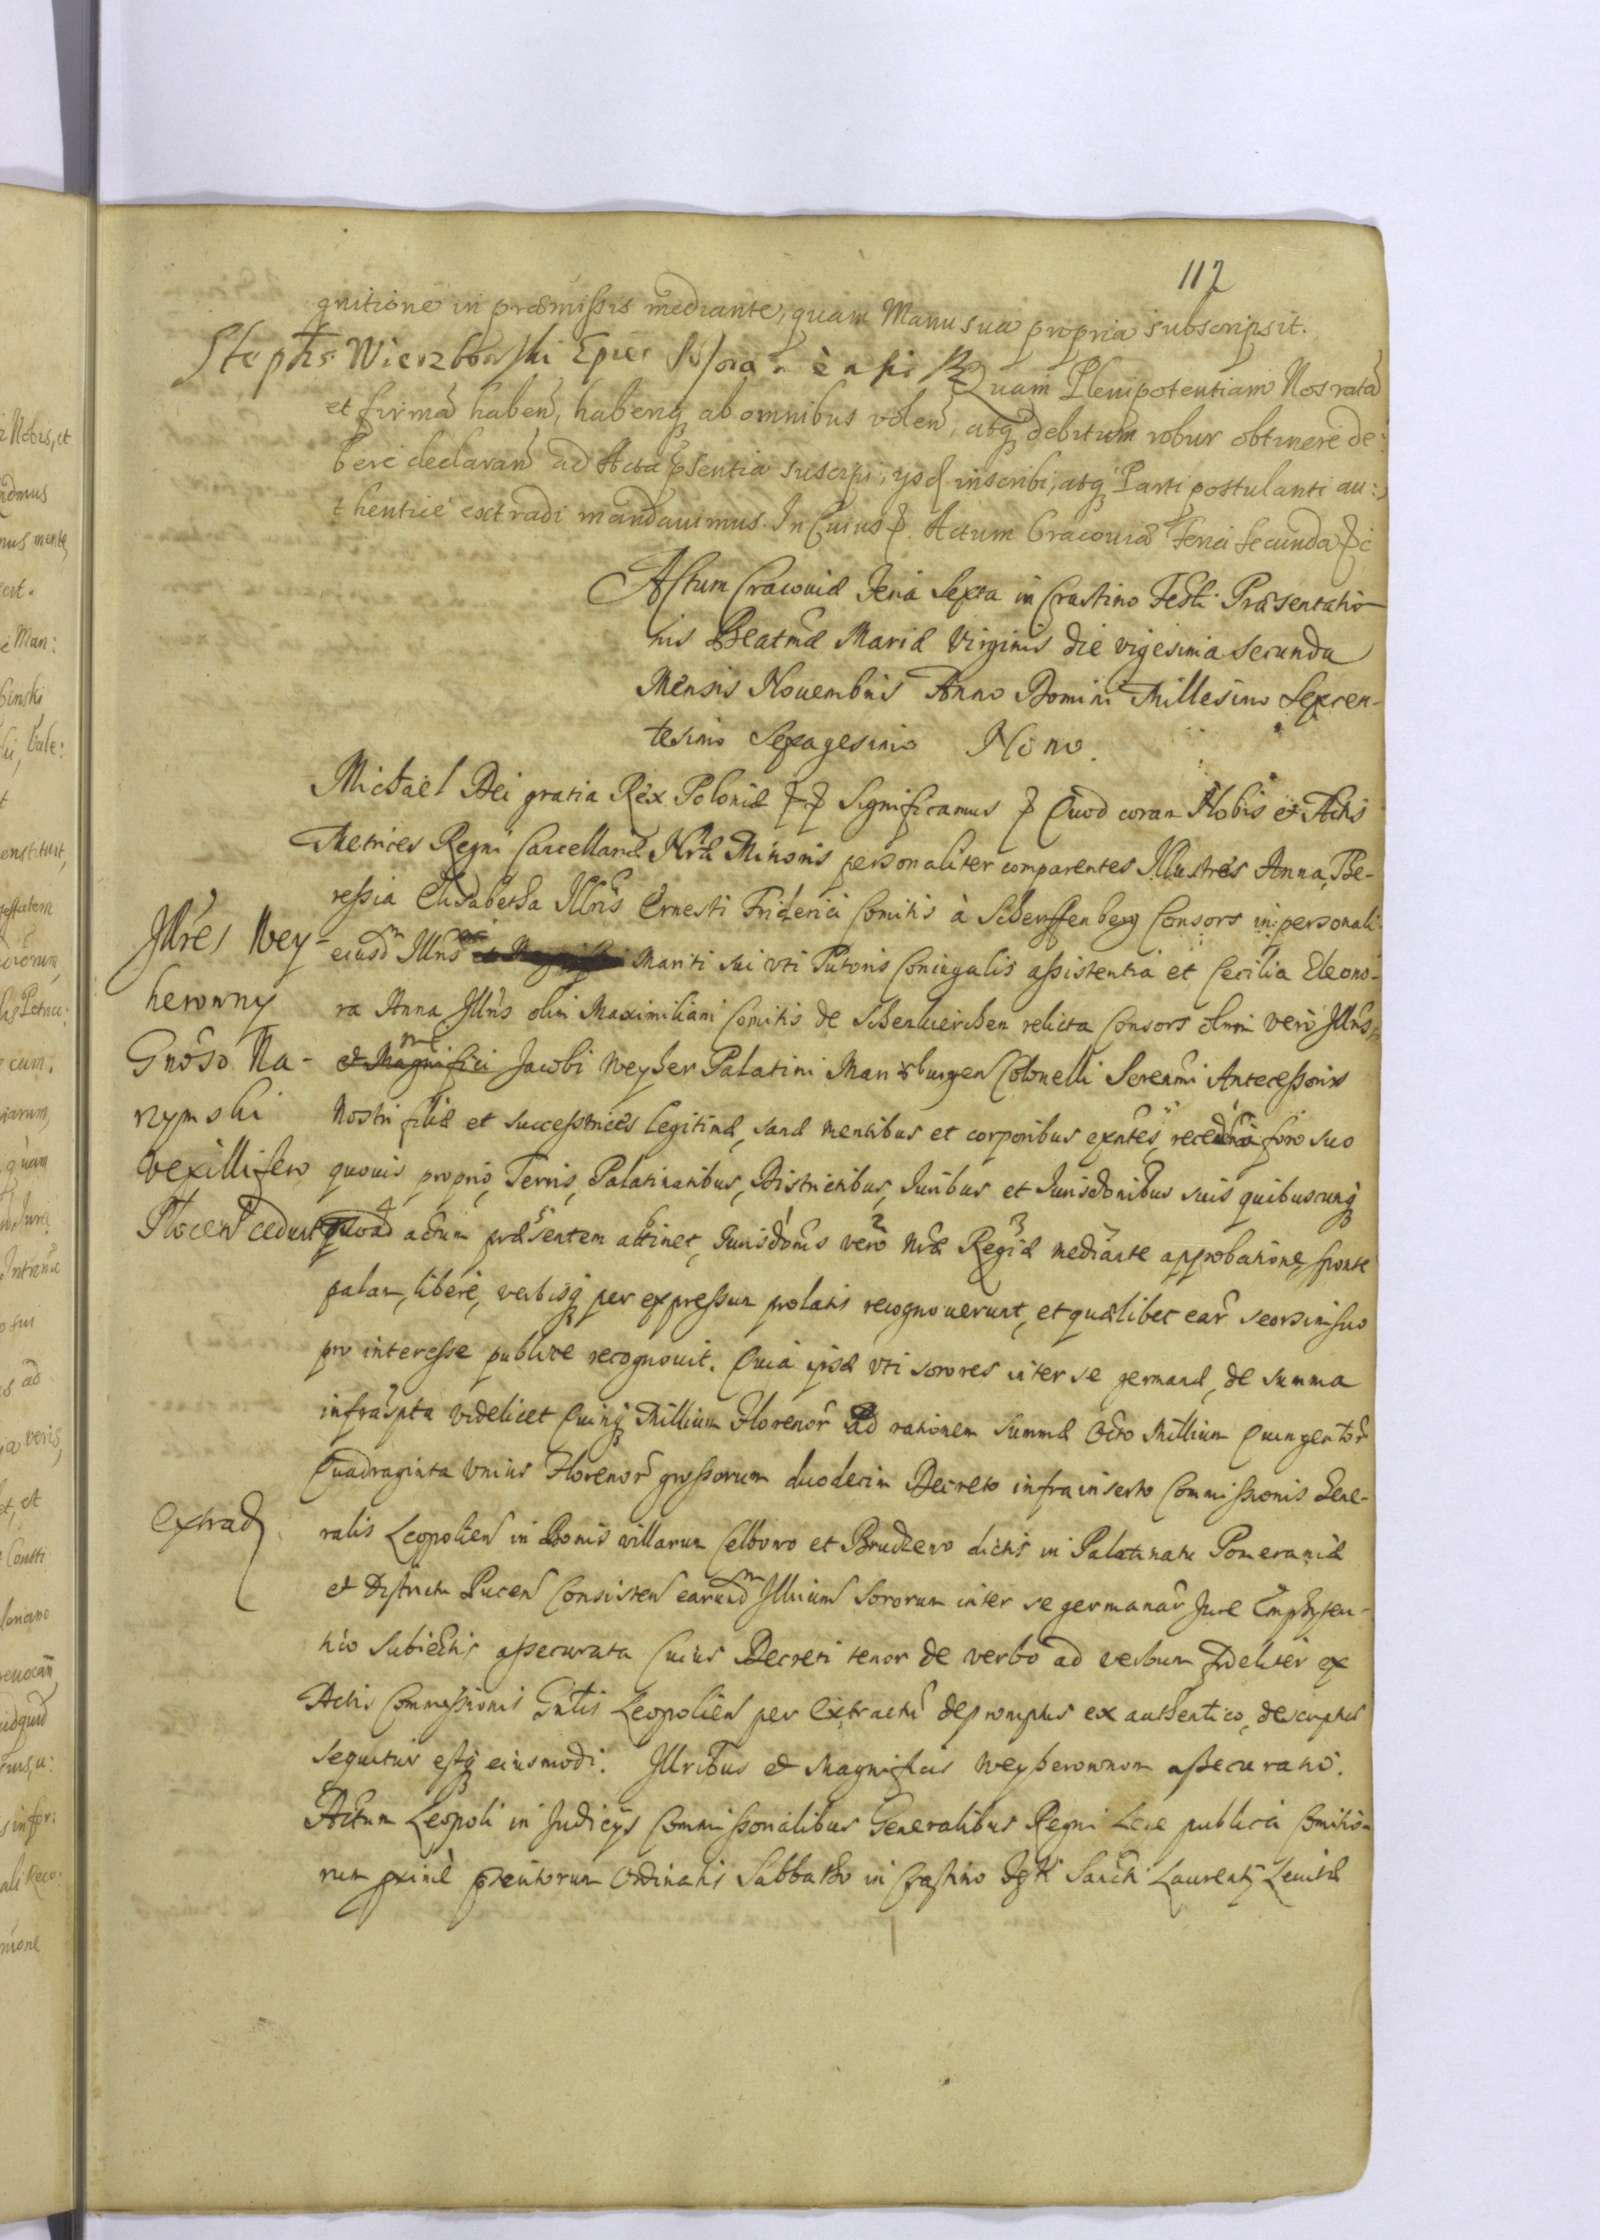 112
gnitione in præmissis mediante, quam Manu sua propria subscripsit.
Stephs Wierzbowski Quam Plenipotentiam Nos ratã
et firmã habeñ, haberiq ab omnibus voleñ, atq debitum robur obtinere de:
bere declarañ ad Acta pñsentia suscipi, ysq inscribi, atq Parti postulanti au:
thenticè extradi mandavimus. In Cuius Actum Cracoviæ Feria Secunda
Actum Cracoviæ Feria Sexta in Crastino Festi Præsentatio-
nis Beatmæ Mariæ Virginis die vigesima secunda
Mensis Novembris Anno Domini Millesimo Sexcen-
tesimo Sexagesimo Nono.
Michaël Dei gratia Rex Poloniæ Significamus Quod coram Nobis et Actis
Metrices Regni Cancellariæ Nræ Minoris personaliter comparentes Illustres Anna, The-
ressia Elisabetha Illris Ernesti Friderici Comitis à Scherffenberg Consors in personali
eiusdm Illris Mariti sui uti Tutoris Coniugalis assistentia et Cecilia Eleono-
ra Anna Illris olim Maximiliani Comitis de relicta Consors olim vero Illris
et Magnifici Jacobi Weyher Palatini Mariæburgeñ Colonelli Serenmi Antecessoris
Nostri filiæ et successtrices legitimæ, sanæ mentibus et corporibus exñtes, foro suo
quovis proprio, Terris, Palatinatibus, Districtibus, Juribus et Jurisdõnibus suis quibuscunq
quoad actum præsentem attinet, Jurisdõnis vero nræ Regiæ mediante approbatione, sponte
palam, liberè, verbisq per expressum prolatis recognoverunt, et quælibet ear seorsim suo
pro interesse publice recognovit. Quia ipsæ uti sorores inter se germanæ, de summa
infraspta videlicet Quinq Millium Florenor ad rationem summæ Octo Millium Quingentor
Quadraginta Unius Florenor grossorum duodecim Decreto infrainserto Commissionis Gene-
ralis Leopolieñ in Bonis villarum Celbowo et Brudzewo dictis in Palatinatu Pomeraniæ
et Districtu Puceñ Consisteñ earundm Illrium Sororum inter se germanar Jure Emphyteu-
tico Subiectis assecurata Cuius Decreti tenor de verbo ad verbum fideliter ex
Actis Commissionis Gñlis Leopolieñ per Extractũ depromptus ex authentico, descriptus
sequitur estq eiusmodi. Illribus et Magnificis Weyherownom assecuratio.
Actum Leopoli in Judicys Commissorialibus Generalibus Regni Lege publica Comitio-
rum Ordinatis Sabbatho in Crastino Festi Sancti Laurenty Levitæ
Illres Wey-
herowny
Gnoso Na-
rzymski
vexillifero
Ploceñ cedunt
extrad